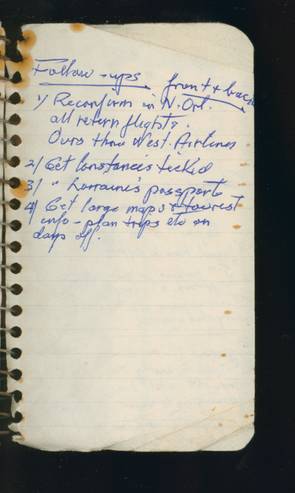 Follow-ups. front + back
1) Reconfirm in N. Orl.
all return flights.
Ours thru West. Airlines
2) Get Constance's ticket
3) " Lorraine's passport
4) Get large maps & tourist
info - plan trips etc on
days off.